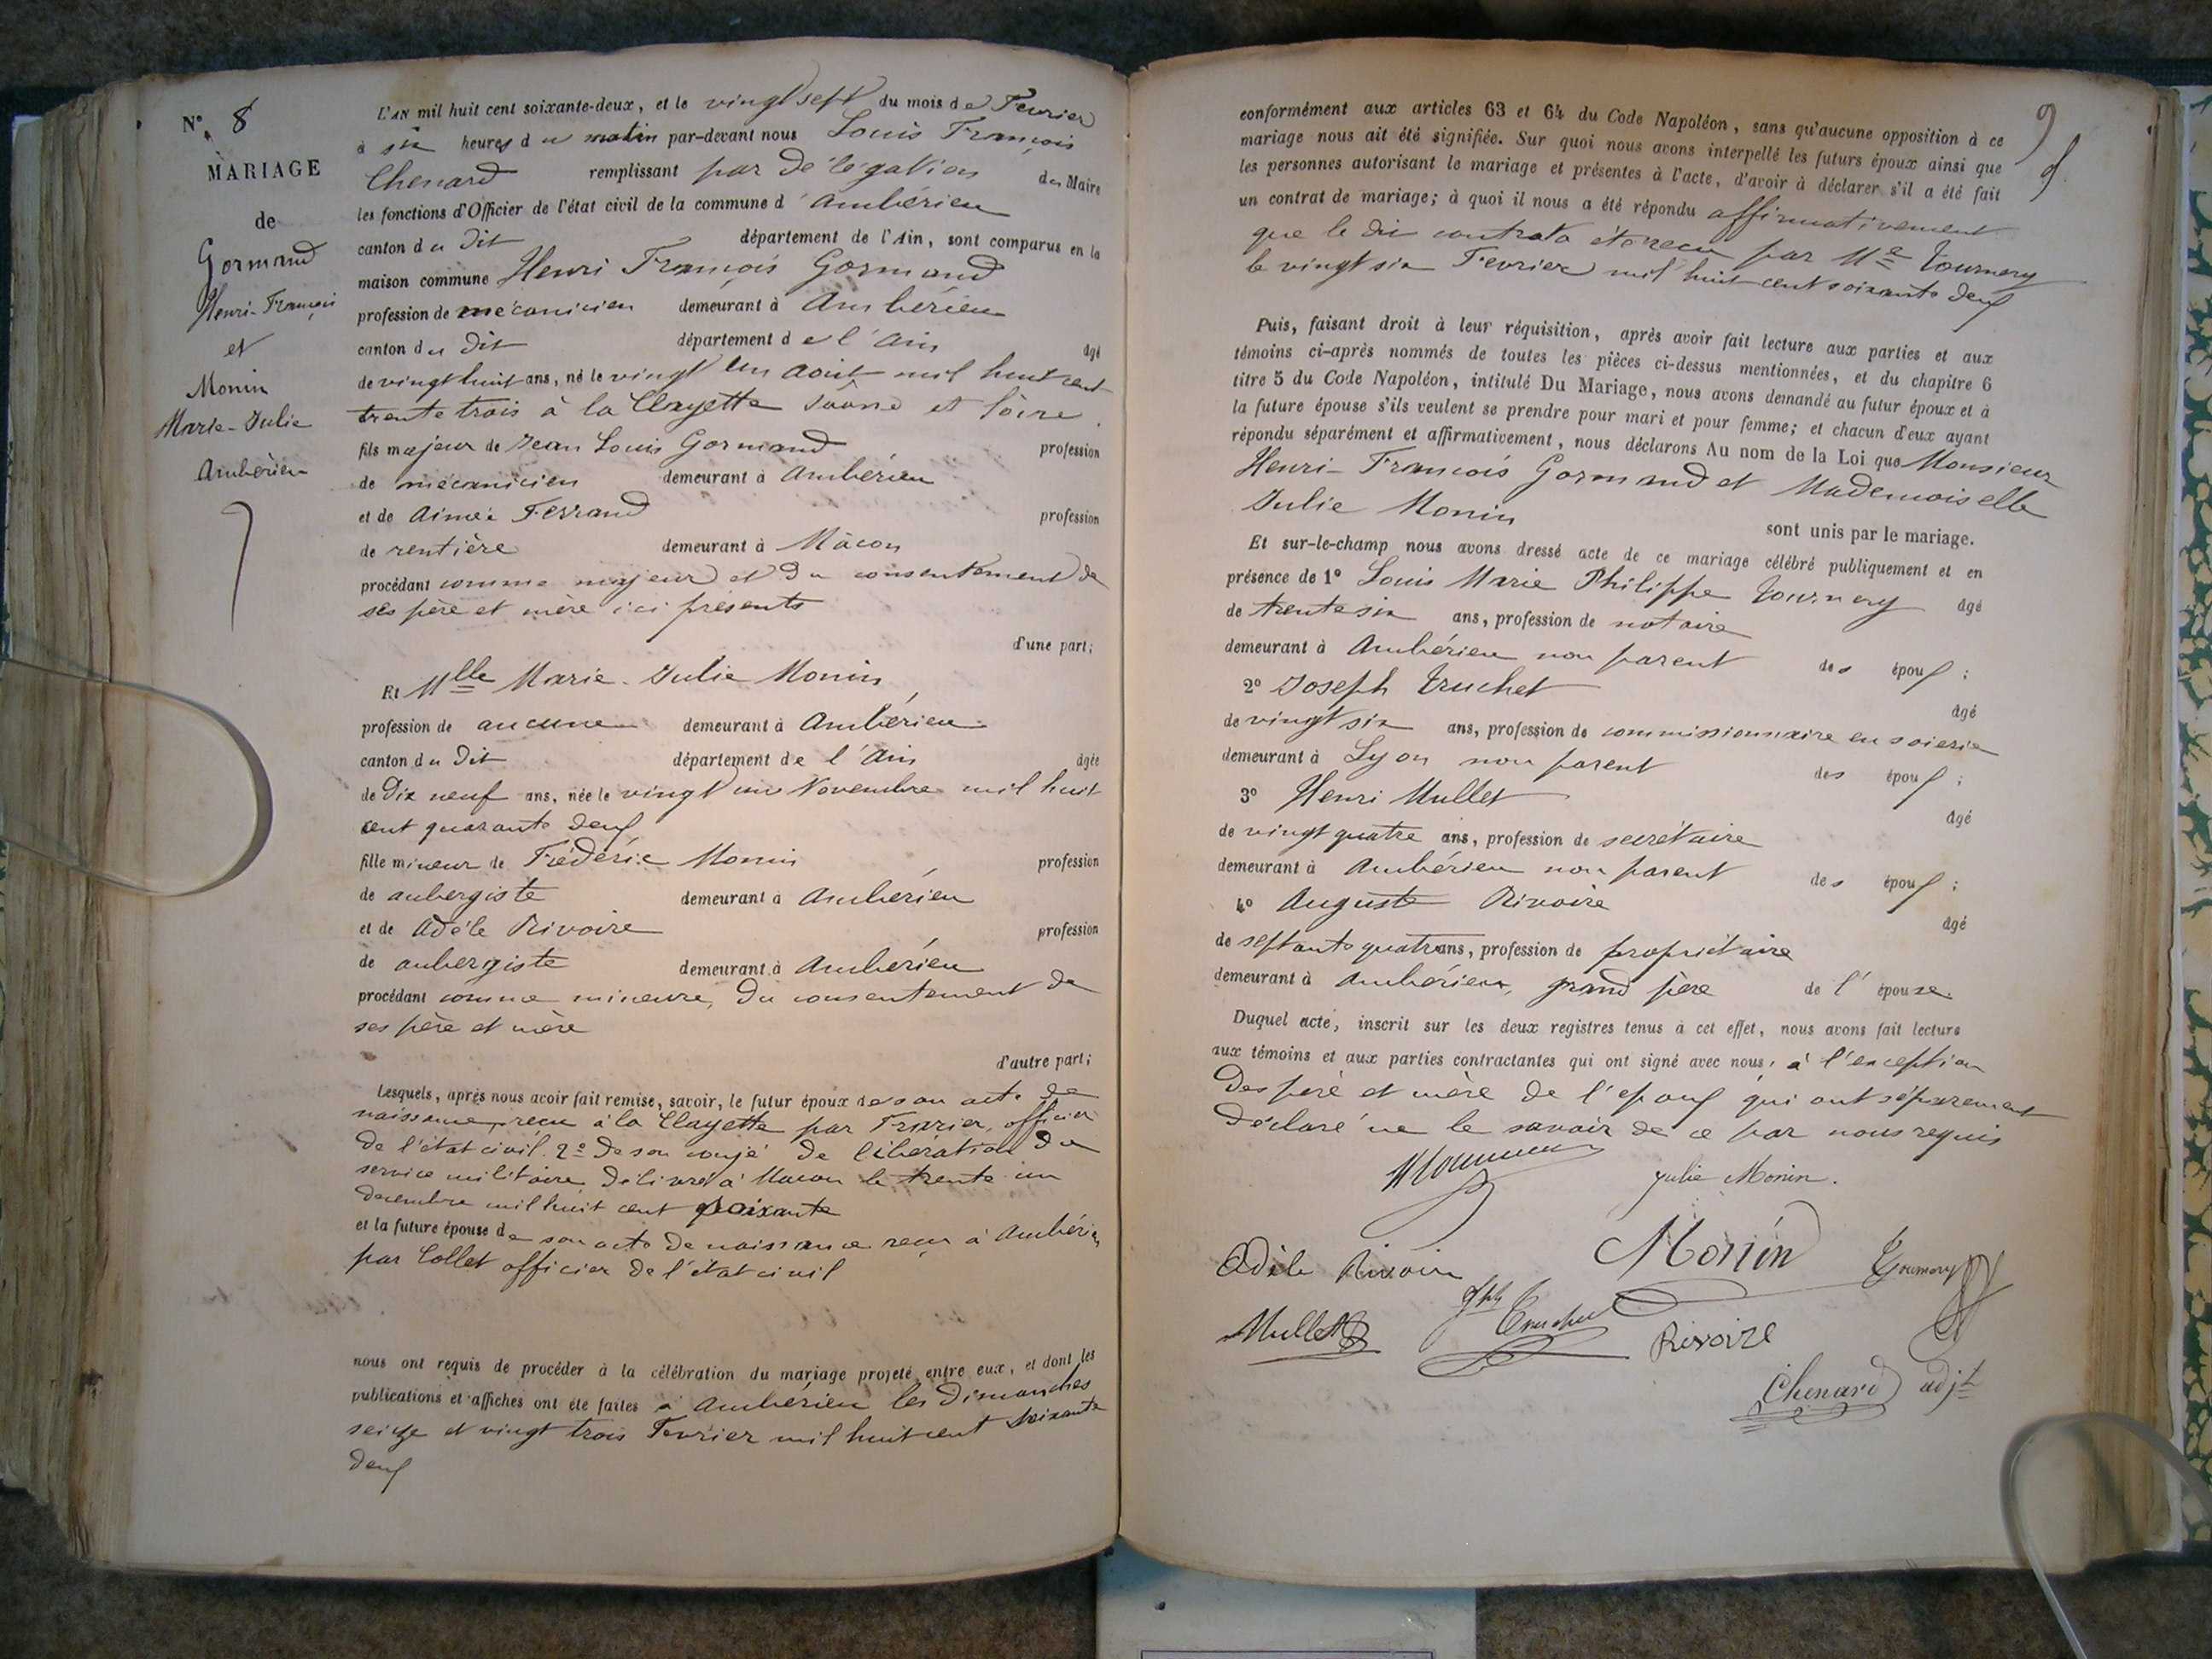 N°. 8
MARIAGE
de
Gormand
Henri-François
et
Monin
Marie-Julie
Ambérieu
L'AN mil huit cent soixante-deux, et le vingt sept du mois de Fevrier
à six heures du matin par-devant nous Louis François
Chenard remplissant par délégation du Maire
les fonctions d'Officier de l'état civil de la commune d'Ambérieu
canton du dit département de l'Ain, sont comparus en la
maison commune Henri François Gormand
profession de mécanicien demeurant à Ambérieu
canton du dit département de l'Ain âgé
de vingt huit ans, né le vingt un août mil huit cent
trente trois à la Clayette Saône et Loire
fils majeur de Jean Louis Gormand profession
de mécanicien demeurant à Ambérieu
et de Aimée Ferrand profession
de rentière demeurant à Mâcon
procédant comme majeur et du consentement de
ses père et mère ici présents
d'une part;
Et Mlle Marie-Julie Monin
profession de aucune demeurant à Ambérieu
canton du dit département de l'Ain âgée
de Dix neuf ans, née le vingt un Novembre mil huit
cent quarante deux
fille mineur de Frédéric Monin profession
de aubergiste demeurant à Ambérieu
et de Adèle Rivoire profession
de aubergiste demeurant à Ambérieu
procédant comme mineure, du consentement de
ses père et mère
d'autre part;
Lesquels, après nous avoir fait remise, savoir, le futur époux de son acte de
naissance reçu à la Clayette par officier
de l'état civil. 2° de son congé de libération du
service militaire délivré à Macon le trente un
decembre mil huit cent soixante
et la future épouse de son acte de naissance reçu à Ambérieu
par Collet officier de l'état civil
nous ont requis de procéder à la célébration du mariage projeté entre eux, et dont les
publications et affiches ont été faites à Ambérieu les Dimanches
seize et vingt trois Fevrier mil huit cent soixante
deux
9
conformément aux articles 63 et 64 du Code Napoléon, sans qu'aucune opposition à ce
mariage nous ait été signifiée. Sur quoi nous avons interpellé les futurs époux ainsi que
les personnes autorisant le mariage et présentes à l'acte, d'avoir à déclarer s'il a été fait
un contrat de mariage; à quoi il nous a été répondu affirmativement
que le dit contrat a été reçu par Me Tournery
le vingt six Fevrier mil huit cent soixante deux
Puis, faisant droit à leur réquisition, après avoir fait lecture aux parties et aux
témoins ci-après nommés de toutes les pièces ci-dessus mentionnées, et du chapitre 6
titre 5 du Code Napoléon, intitulé Du Mariage, nous avons demandé au futur époux et à
la future épouse s'ils veulent se prendre pour mari et pour femme; et chacun d'eux ayant
répondu séparément et affirmativement, nous déclarons Au nom de la Loi que Monsieur
Henri-François Gormand et Mademoiselle
Julie Monin
sont unis par le mariage.
Et sur-le-champ nous avons dressé acte de ce mariage célébré publiquement et en
présence de 1° Louis Marie Philippe Tournery âgé
de trente six ans, profession de notaire
demeurant à Ambérieu non parent des époux;
2° Joseph Truchet
âgé
de vingt six ans, profession de commissionnaire en soierie
demeurant à Lyon non parent des époux;
3° Henri Mullet
âgé
de vingt quatre ans, profession de secrétaire
demeurant à Ambérieu non parent des époux;
4° Auguste Rivoire
âgé
de septante quatre ans, profession de propriétaire
demeurant à Ambérieu, grand père de l'épouse.
Duquel acte, inscrit sur les deux registres tenus à cet effet, nous avons fait lecture
aux témoins et aux parties contractantes qui ont signé avec nous, à l'exception
des père et mère de l'epoux qui ont séparement
déclaré ne le savoir de ce par nous requis
Julie Monin.
Adèle Rivoire Monin Tournery
Mullet Jph Truchet Rivoire
Chenard adjt